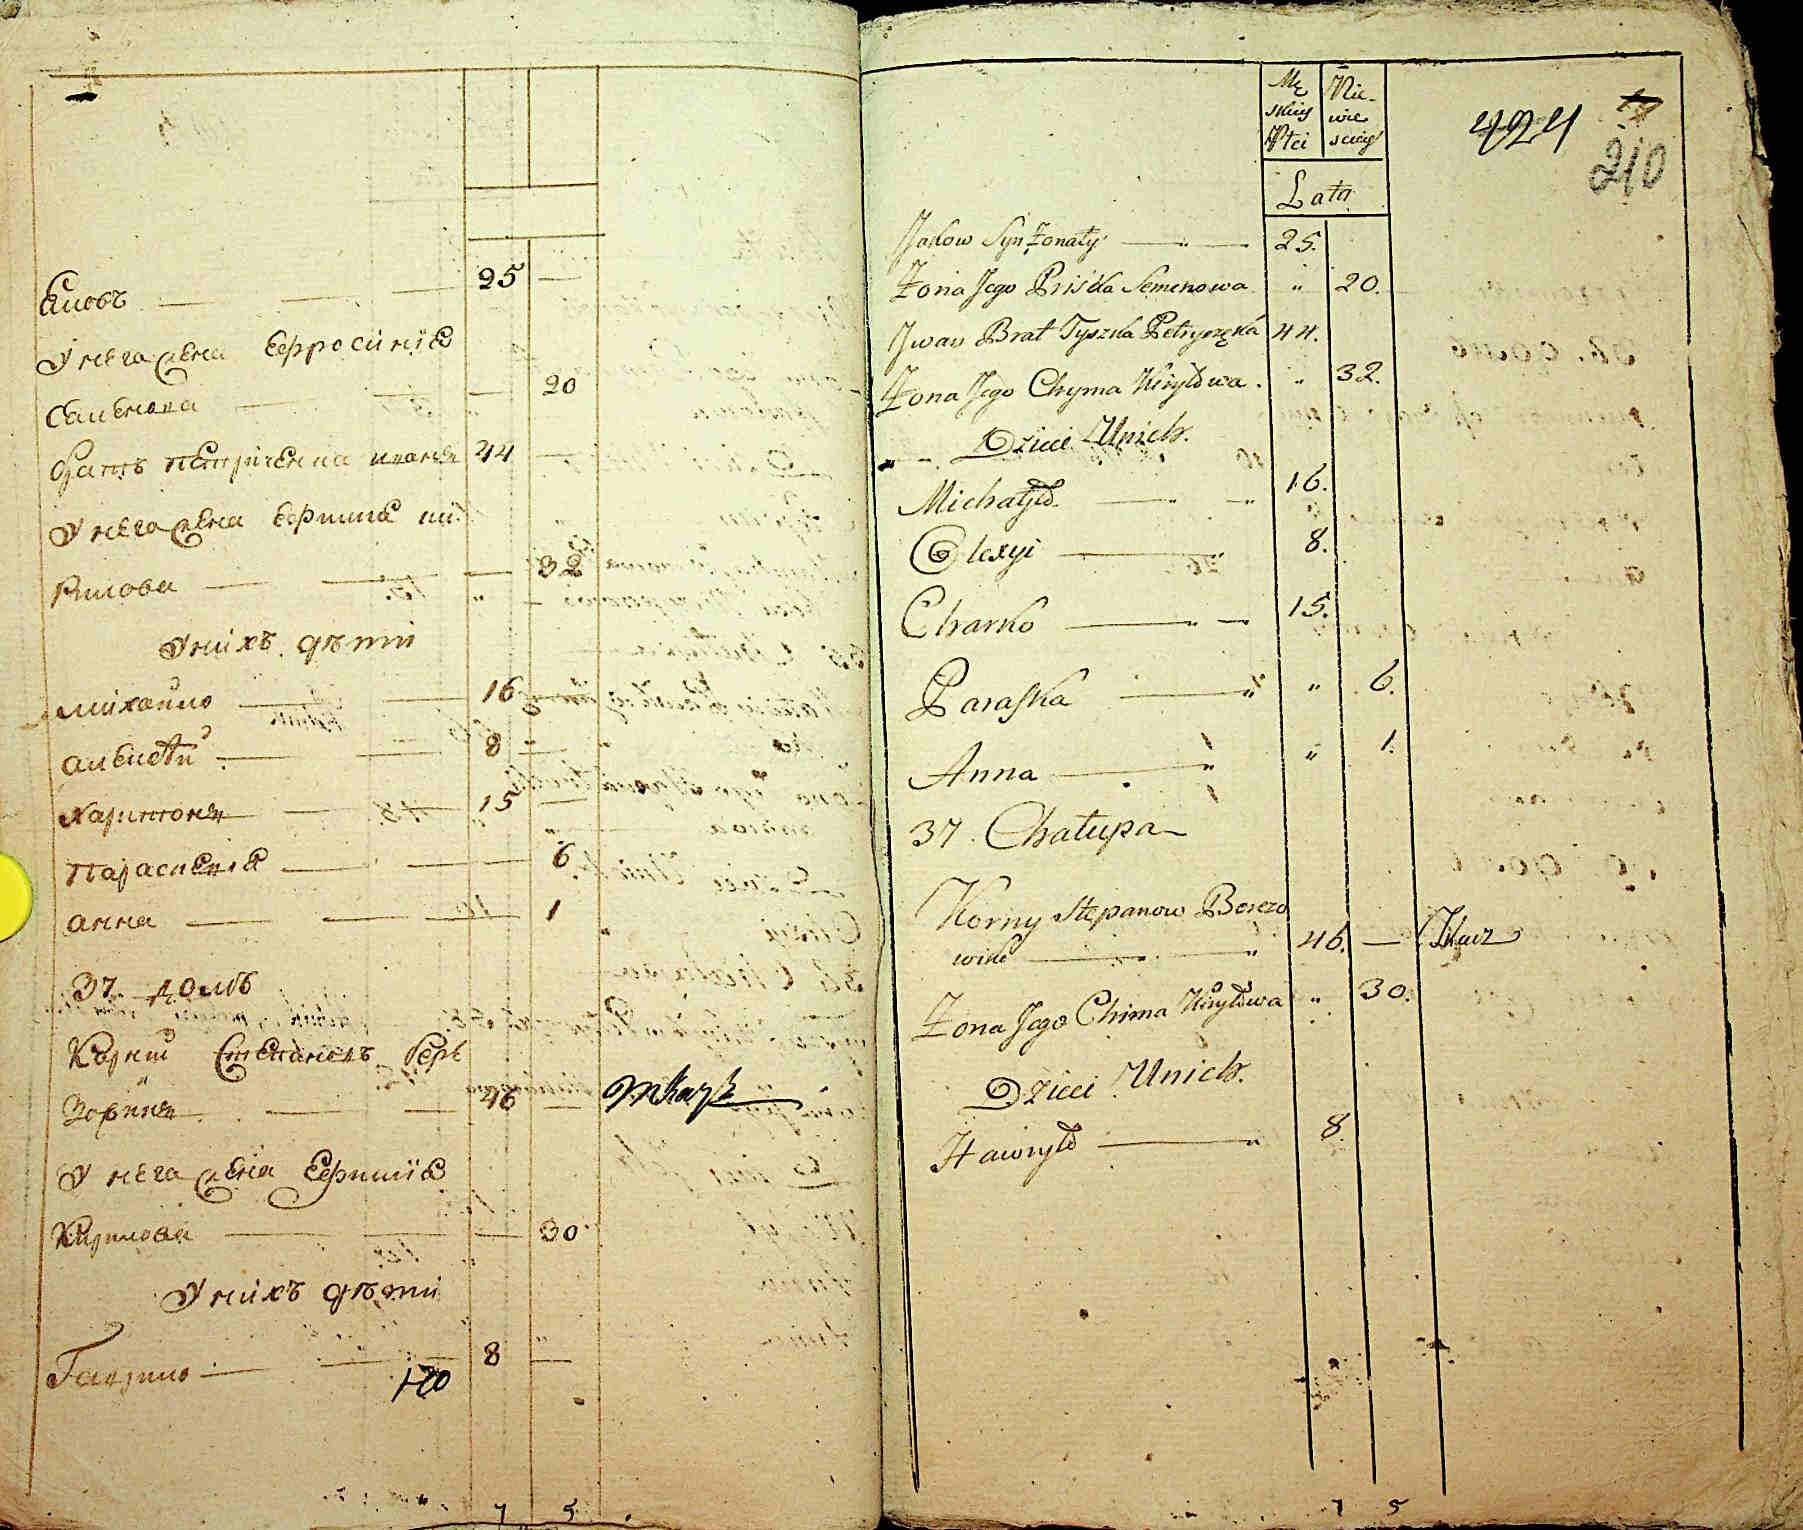 Яковъ 25
У него жена Еефросинія
Семенова 20
Братъ Петриченка Иванъ 44
У него жена Еефимія Ки
рилова 32
У нихъ дѣти
Михайло 16
Алексѣй 8
Харитонъ 15
Параскевія 6
Анна 1
37 домъ
Корній Степановъ Бере
зовикъ 46
У него жена Еефимія
Кирилова 30
У нихъ дѣти
Гаврило 8
170
7 5
Mę
skiey
Płci
Nie
wie
sciey
Lata
424
210
Jakow Syn Żonaty 25.
Żona Jego Priska Semenowa " 20.
Jwan Brat Tyszka Petryczęka 44.
Żona Jego Chyma Kiryłowa " 32.
Dzieci Unich.
Michayło 16.
Olexyi 8.
Charko 15.
Paraska " 6.
Anna " 1.
37. Chałupa
Korny Stepanow Berezo
wike 46. — Tkacz
Żona Jego Chima Kiryłowa " 30.
Dzieci Unich.
Hawryło 8.
7 5